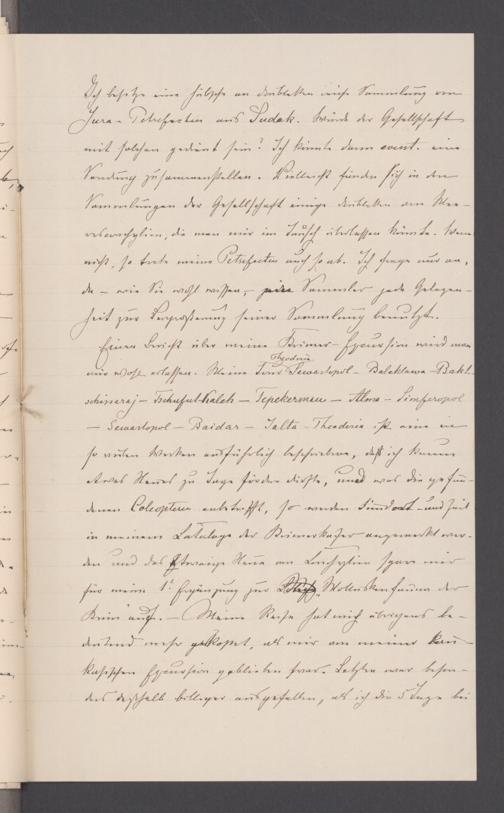 Ich besitze eine hübsche an doubletten reiche Sammlung von
Jura-Petrefacten aus Sudak. Würde der Gesellschaft
mit solchen gedient sein? Ich könnte dann event. eine
Sendung zusammenstellen. Vielleicht finden sich in den
Sammlungen der Gesellschaft einige doubletten an Mee-
resconchylien, die man mir im Tausch überlassen könnte. Wenn
nicht, so trete meine Petrefacten auch so ab. Ich frage nur an,
da – wie Sie wohl wissen, – Sammler jede Gelegen-
heit zur Vergrößerung seiner Sammlung benutzt.
Einen Bericht über meine Krimer-Excursion wird man
mir wohl erlassen. Meine Tour Theodosia Sewastopol – Balaklawa – Bakt-
schissaraj – Tschufut-Kaleh – Tepekerman – Alma – Simferopol
– Sewastopol – Baidar – Jalta – Theodosia ist eine in
so vielen Werken ausführlich beschriebene, daß ich kaum
etwas Neues zu Tage fördern dürfte, und was die gefun-
denen Coleoptera anbetrifft, so werden Fundort und Zeit
in meinem Cataloge der Krimerkäfer angemerkt wer-
den und das Etwaige Neue an Conchylien spare mir
für meine 1. Ergänzung zur "Molluskenfauna der
Krim" auf. – Meine Reise hat mich übrigens be-
deutend mehr gekostet, als mir von meiner kau-
kasischen Excursion geblieben war. Letztere war beson-
ders deßhalb billiger ausgefallen, als ich die 5 Tage bei